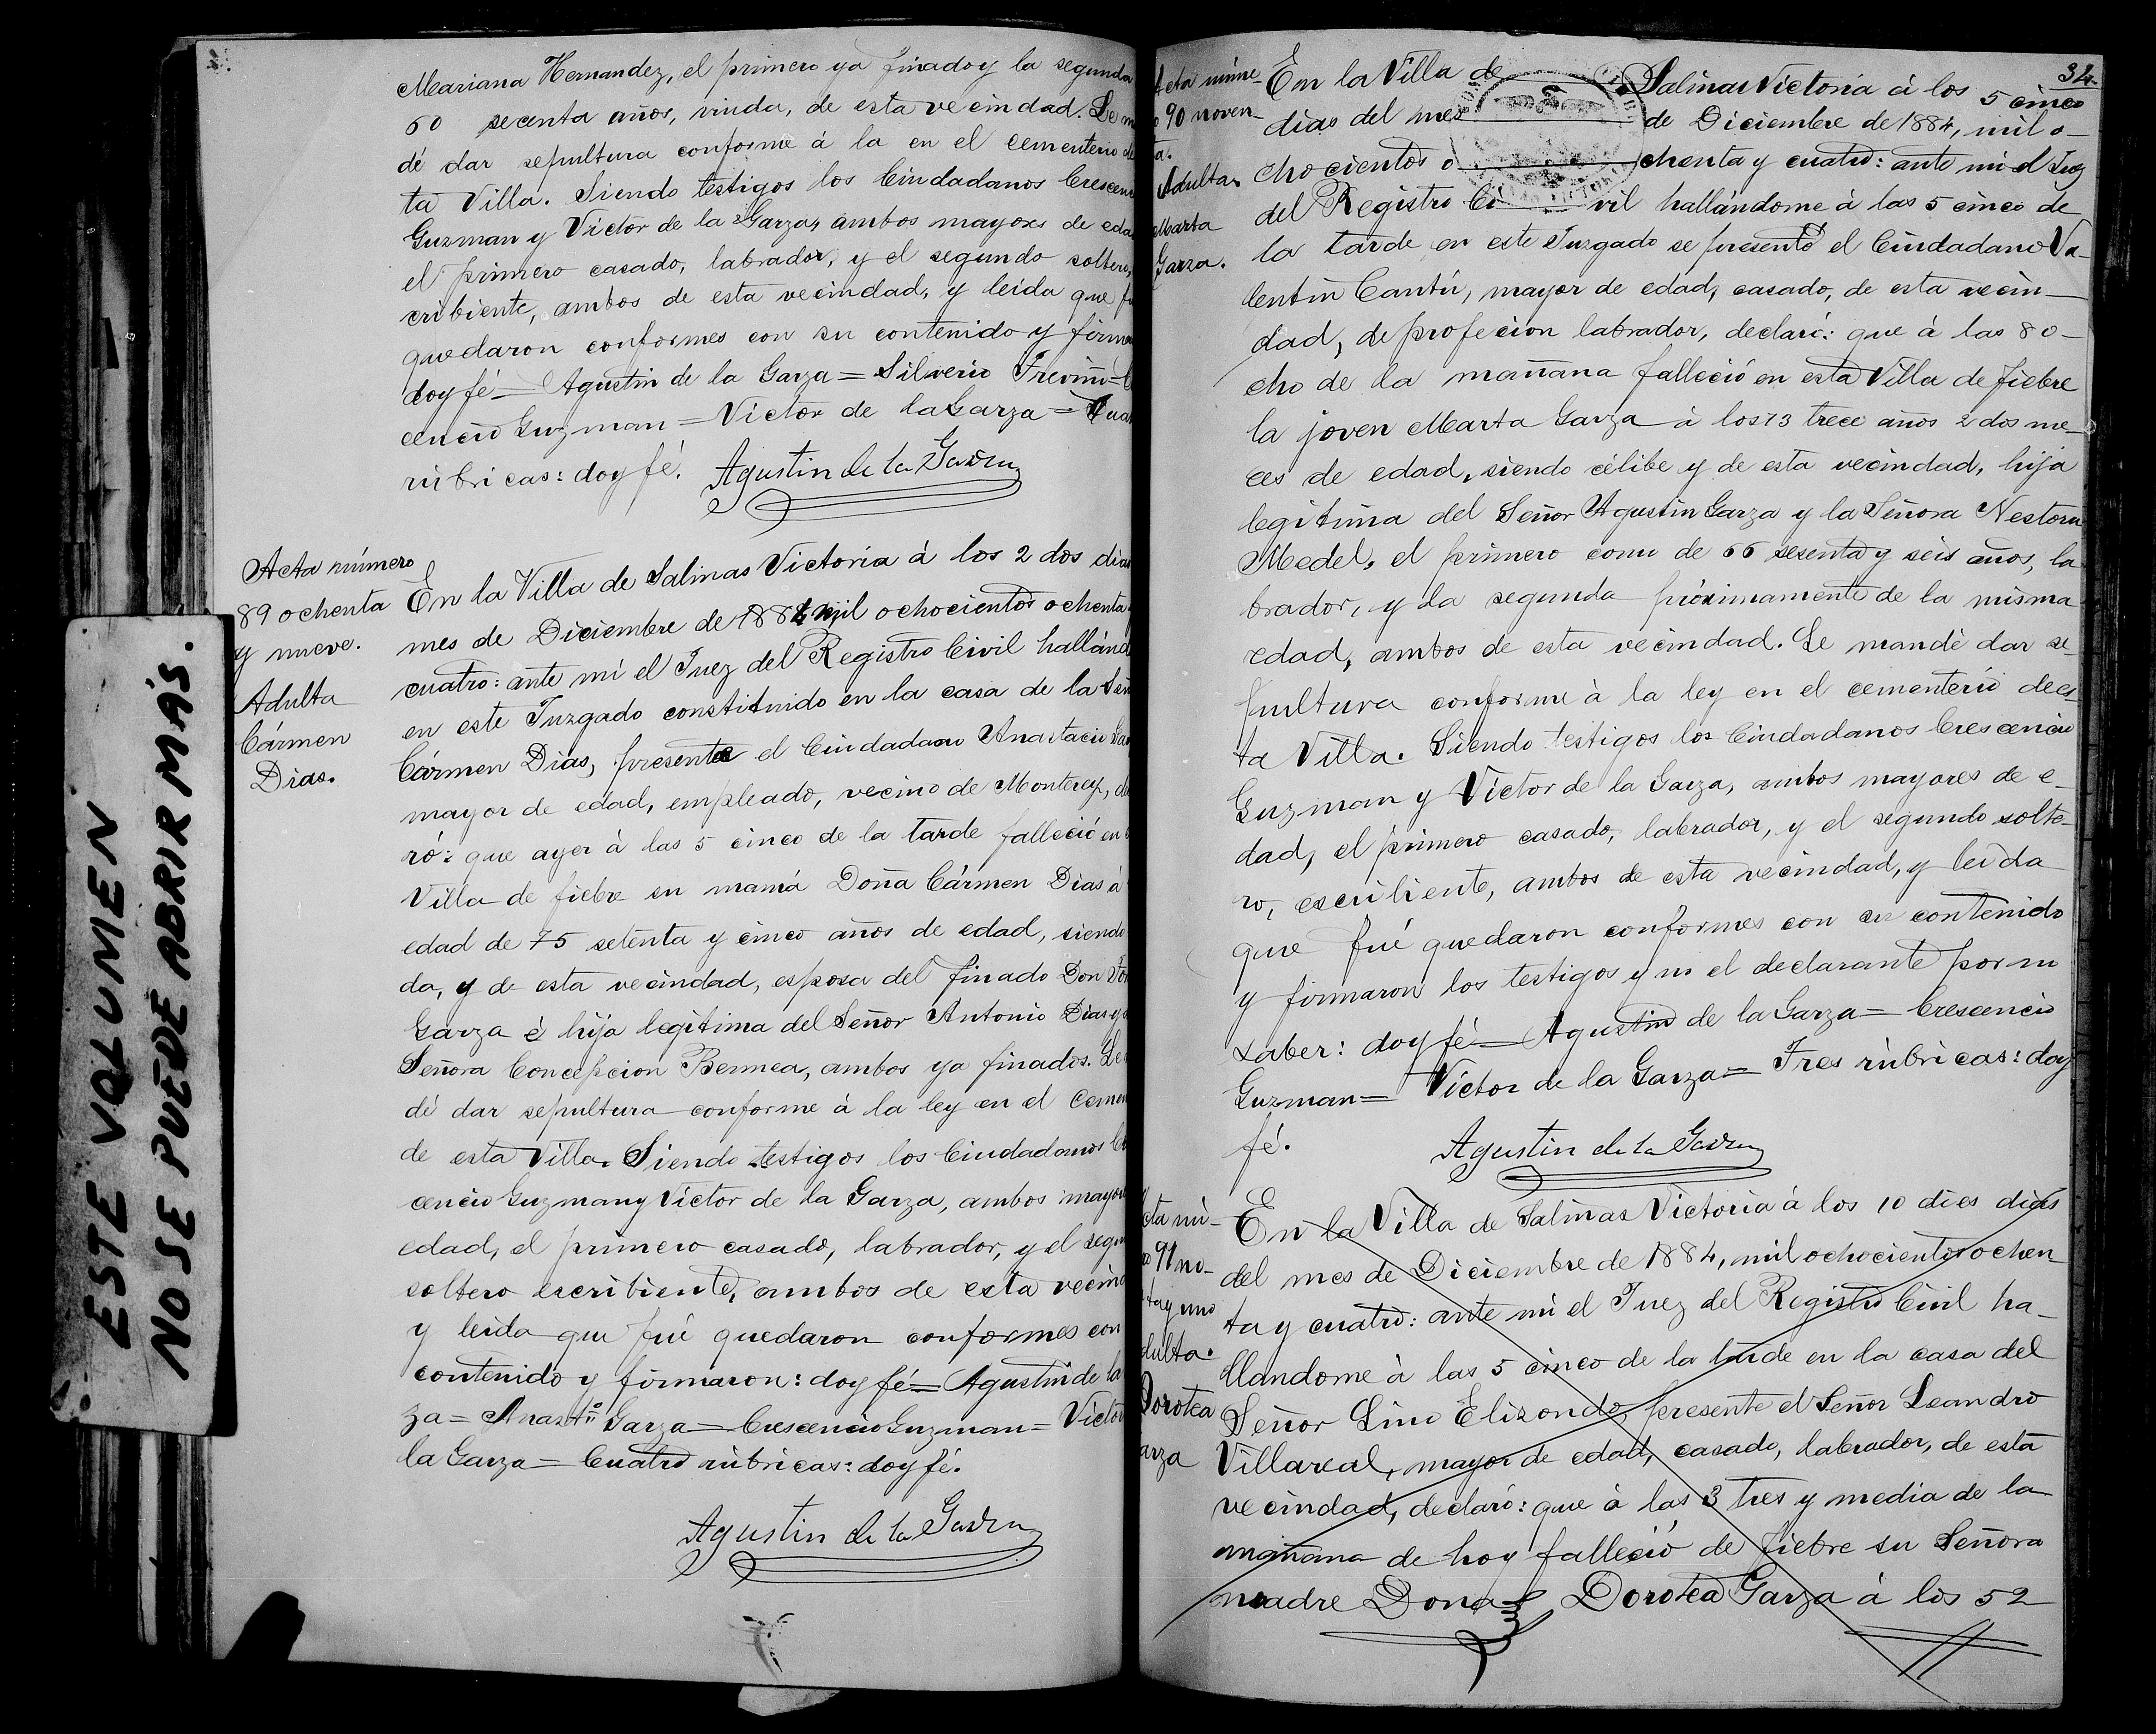 Mariana Hernandez, el primero ya finado y la segunda
60 secenta años, viuda, de esta vecindad. Le m
dé dar sepultura conforme á la en el cementerio de
ta Villa. Siendo testigos los Ciudadanos Crescen
Guzman y Victor de la Garza, ambos mayores de eda
el primero casado, labrador, y el segundo soltero,
cribiente, ambos de esta vecindad, y leida que fu
quedaron conformes con su contenido y firma
doy fé = Agustin de la Garza = Silverio Treviño =
cencio Guzman = Victor de la Garza = Cua
rúbricas: doy fé. Agustin de la Garza
Acta número
89 ochenta
y nueve.
Adulta
Cármen
Dias.
En la Villa de Salinas Victoria á los 2 dos dias
mes de Diciembre de 1884 mil ochocientos ochenta
cuatro: ante mi el Juez del Registro Civil hallánd
en este Juzgado constituido en la casa de la Señ
Cármen Dias, presente el Ciudadano Anastacio Ga
mayor de edad, empleado, vecino de Monterey, de
ró: que ayer á las 5 cinco de la tarde falleció en
Villa de fiebre su mamá Doña Cármen Dias á
edad de 75 setenta y cinco años de edad, siendo
da, y de esta vecindad, esposa del finado Don
Garza é hija legítima del Señor Antonio Dias y
Señora Concepcion Bermea, ambos ya finados. Le
dé dar sepultura conforme á la ley en el Cemen
de esta Villa. Siendo testigos los Ciudadanos C
cencio Guzman y Victor de la Garza, ambos mayor
edad, el primero casado, labrador, y el segu
soltero escribiente, ambos de esta vecin
y leida que fué quedaron conformes con
contenido y firmaron: doy fé = Agustin de la
za = Anast⁰ Garza = Crescencio Guzman = Victor
la Garza = Cuatro rúbricas: doy fé.
Agustin de la Garza
ESTE VOLUMEN
NO SE PUEDE ABRIR MÁS.
34.
Acta núme
90 noven-
ta.
Adulta.
Marta
Garza.
En la Villa de Salinas Victoria á los 5 cinco
dias del mes de Diciembre de 1884, mil o-
chocientos ochenta y cuatro: ante mi el Juez
del Registro Civil hallándome á las 5 cinco de
la tarde en este Juzgado se presentó el Ciudadano Va-
lentin Cantú, mayor de edad, casado, de esta vecin-
dad, de profecion labrador, declaró: que á las 8 o-
cho de la mañana falleció en esta Villa de fiebre
la joven Marta Garza á los 13 trece años 2 dos me-
ces de edad, siendo célibe y de esta vecindad, hija
legítima del Señor Agustin Garza y la Señora Nestora
Medel, el primero como de 66 sesenta y seis años, la
brador, y la segunda próximamente de la misma
edad, ambos de esta vecindad. Le mandé dar se-
pultura conforme á la ley en el cementerio de es
ta Villa. Siendo testigos los Ciudadanos Crescencio
Guzman y Victor de la Garza, ambos mayores de e-
dad, el primero casado, labrador, y el segundo solte-
ro, escribiente, ambos de esta vecindad, y leida
que fué quedaron conformes con su contenido
y firmaron los testigos y no el declarante por no
saber: doy fé = Agustin de la Garza = Crescencio
Guzman = Victor de la Garza = Tres rúbricas: doy
fé. Agustin de la Garza
cta nú-
91 no-
ta y uno
dulta.
Dorotea
arza
En la Villa de Salinas Victoria á los 10 dies dias
del mes de Diciembre de 1884, mil ochocientos ochen
ta y cuatro: ante mi el Juez del Registro Civil ha-
llandome á las 5 cinco de la tarde en la casa del
Señor Lino Elizondo, presente el Señor Leandro
Villareal, mayor de edad, casado, labrador, de esta
vecindad, declaró: que á las 3 tres y media de la
mañana de hoy falleció de fiebre su Señora
madre Dona Dorotea Garza á los 52